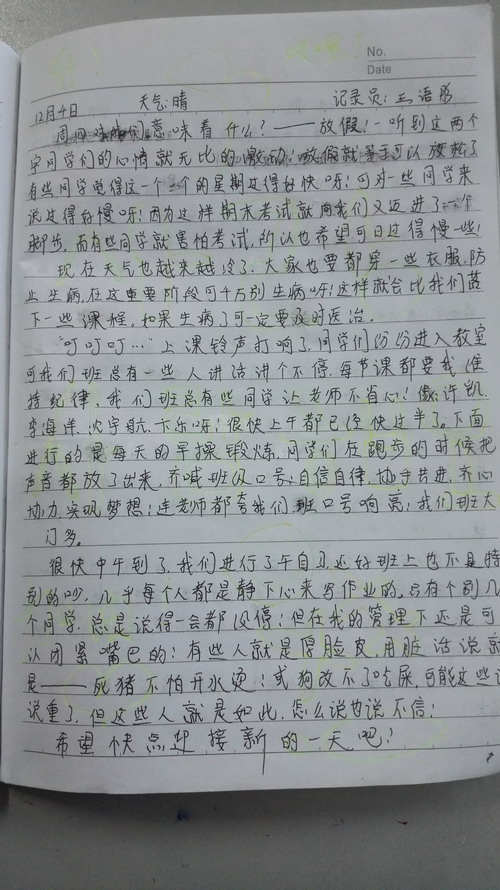 No.
Date
12月4日 天气:晴 记录员:王语彤
周四对我们意味着什么?——放假!一听到这两个
字同学们的心情就无比的激动!放假就等于可以放松了
有些同学觉得这一个个的星期过得好快呀!可对一些同学来
说过得好慢呀!因为这样期末考试就向我们又迈进了一个
脚步,而有些同学就害怕考试,所以也希望可日过得慢一些!
现在天气也越来越冷了,大家也要都穿一些衣服,防
止生病,在这重要阶段可千万别生病呀!这样就会比我们落
下一些课程,如果生病了可一定要及时医治。
"叮叮叮…"上课铃声打响了,同学们纷纷进入教室
可我们班总有一些人讲话讲个不停,每节课都要我维
持纪律,我们班总有些同学让老师不省心!像:许凯
李海洋、沈宇航、卞乐呀!很快上午都已经快过半了。下面
进行的是每天的早操锻炼,同学们在跑步的时候把
声音都放了出来,齐喊班级口号:自信自律,协手共进,齐心
协力,实现梦想!连老师都夸我们班口号响亮!我们班大
门多。
很快中午到了,我们进行了午自习,还好班上也不是特
别的吵,几乎每个人都是静下心来写作业的,只有个别几
个同学,总是说得一会都没停!但在我的管理下还是可
以闭紧嘴巴的!有些人就是厚脸皮,用脏话说就
是——死猪不怕开水烫!或狗改不了吃屎,可能这些话
说重了,但这些人就是如此,怎么说也说不信!
希望快点迎接新的一天吧?